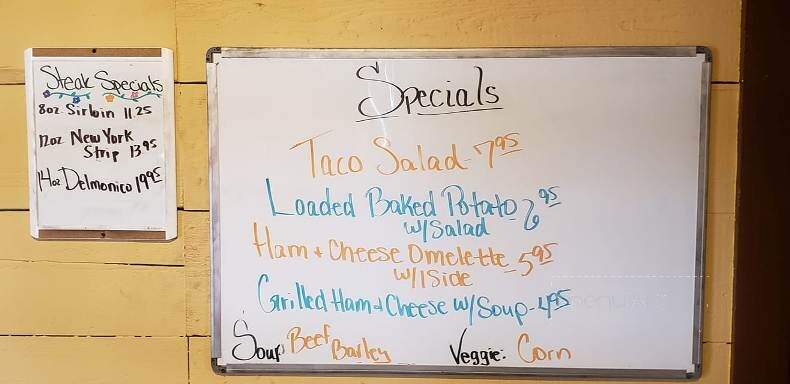 Steak Specials
8oz Sirloin 11.25
12oz New York
Strip 13.95
14oz Delmonico 19.95
Specials
Taco Salad - 7.95
Loaded Baked Potato 6.95
w/Salad
Ham + Cheese Omelette - 5.95
w/1 Side
Grilled Ham + Cheese w/Soup - 4.95
Soup: Beef Barley
Veggie: Corn